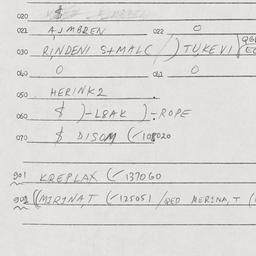 020 $
021 AJMBREN 022 O
030 RINDENI S+MALC /) TUKEVI
040 O 041 O
050 HERINK2
060 $ )-L8AK )-ROPE
070 $ DISOM (✓108020
901 KREPLAX (✓137060
902 ((MIRINA,T (✓125051 /QED MERINA,T (